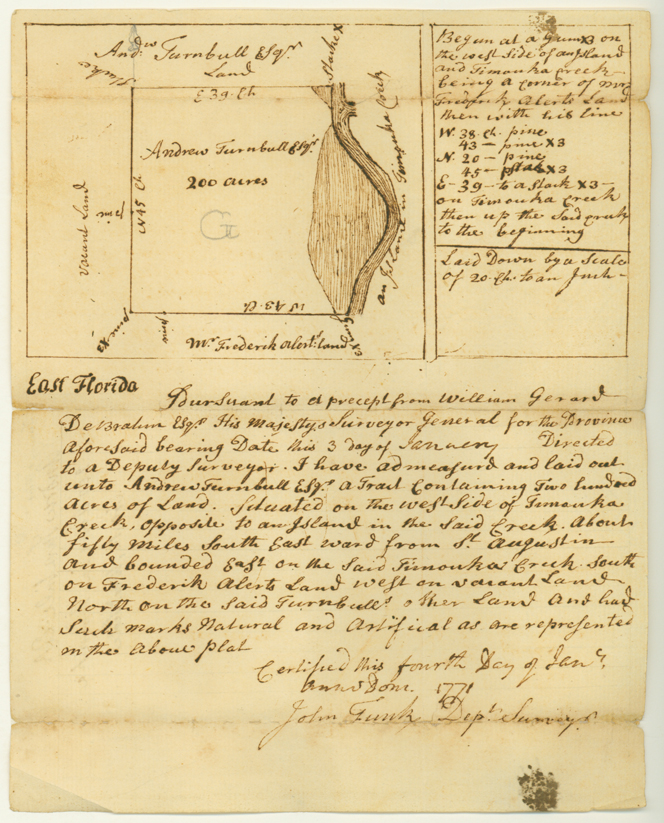 Andw. Turnbull Esqr.
Land
Stake
Stake X
E 39. Ch
Andrew Turnbull Esqr.
200 acres
G
Vacant Land
pine
N 45 Ch
an Island in Timouka Creek
W 43. Ch
pine X3
pine
Mr. Frederik Alerts land
Begun at a Gum X3 on
the west Side of an Island
and Timouka Creek
being a corner of Mr.
Frederik Alerts Land
then with his line
W. 38 Ch. pine
43 — pine X3
N. 20 — pine
45 — X3
E — 39 — to a Stack X3 —
on Timouka Creek
then up the Said Creek
to the beginning
Laid Down by a Scale
of 20. Ch. to an Inch —
East Florida
Pursuant to a precept from William Gerard
DeBrahm Esqr. His Majestys Surveyor General for the Province
aforeSaid bearing Date this 3 day of January Directed
to a Deputy Surveyor. I have admeasurd and laid out
unto Andrew Turnbull Esqr. a Tract Containing Two hundred
Acres of Land. Situated on the west Side of Timouka
Creek, opposite to an Island in the Said Creek. About
fifty Miles South East ward from St. Augustin
and bounded East on the Said Timouka Creek South
on Frederik Alerts Land west on vacant Land
North on the Said Turnbulls other Land and had
Such marks Natural and Artifical as are represented
in the Above plat
Certified this fourth Day of Jany.
Anno Dom. 1771
John Funk Dept. Surveyr.